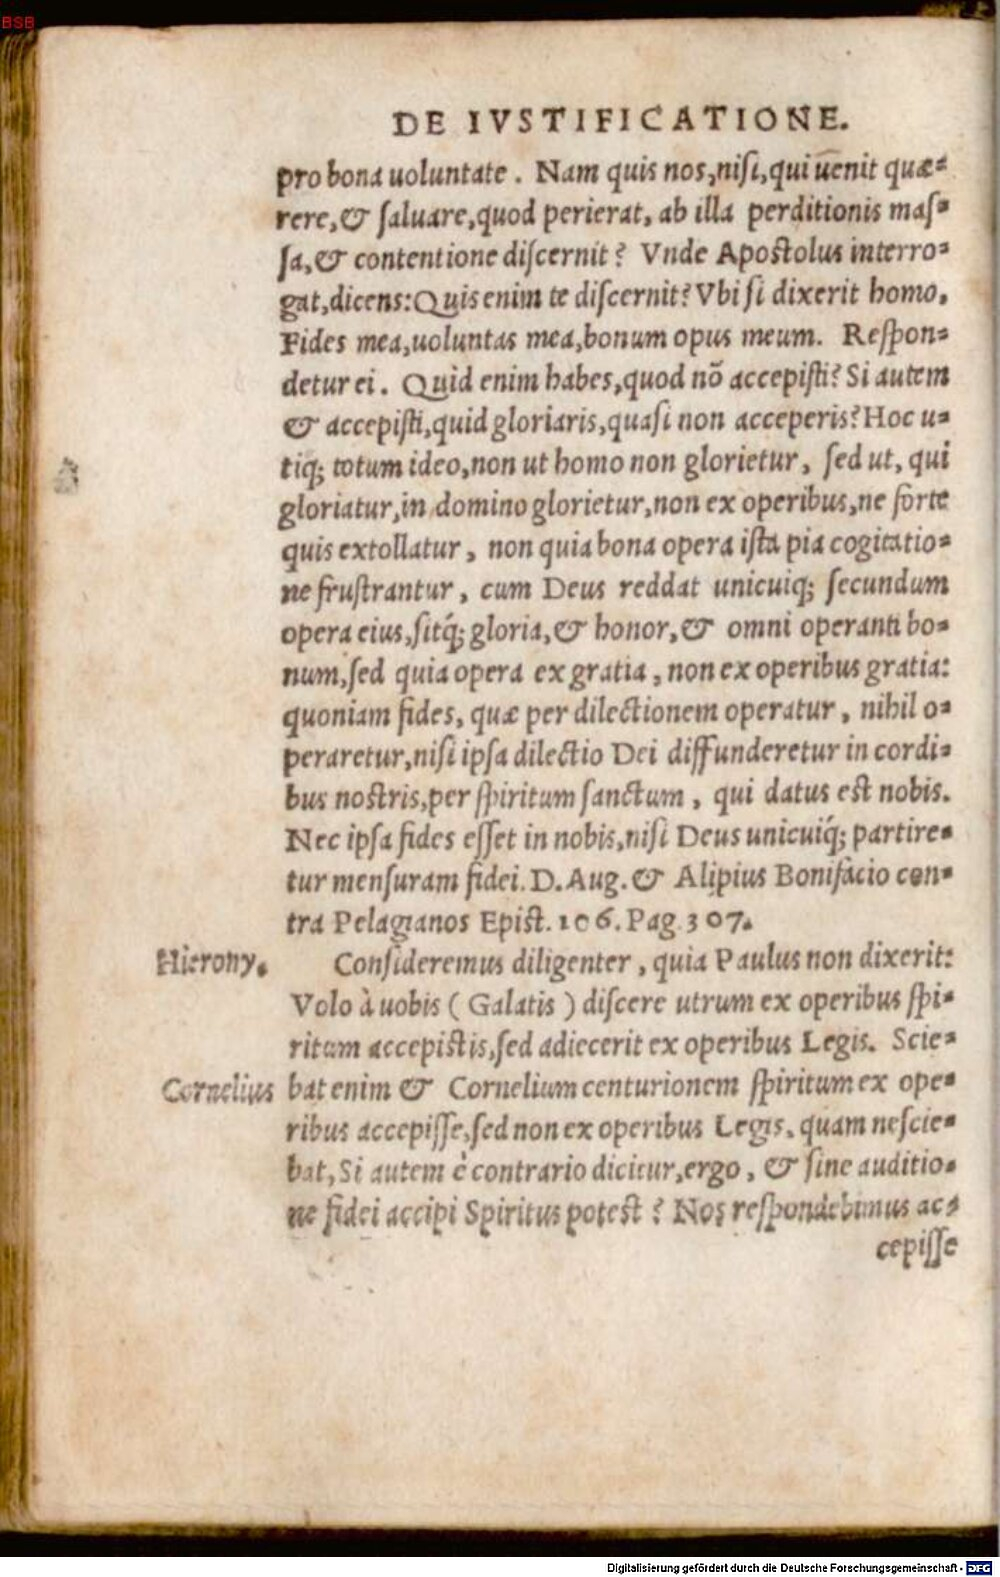 BSB
DE IVSTIFICATIONE.
pro bona uoluntate. Nam quis nos, nisi, qui uēnit quæ-
rere, & saluare, quod perierat, ab illa perditionis mas-
sa, & contentione discernit? Vnde Apostolus interro-
gat, dicens: Quis enim te discernit? Vbi si dixerit homo,
Fides mea, uoluntas mea, bonum opus meum. Respon-
detur ei. Quid enim habes, quod nõ accepisti? Si autem
& accepisti, quid gloriaris, quasi non acceperis? Hoc u-
tiq; totum ideo, non ut homo non glorietur, sed ut, qui
gloriatur, in domino glorietur, non ex operibus, ne forte
quis extollatur, non quia bona opera ista pia cogitatio-
ne frustrantur, cum Deus reddat unicuiq; secundum
opera eius, sitq́; gloria, & honor, & omni operanti bo-
num, sed quia opera ex gratia, non ex operibus gratia:
quoniam fides, quæ per dilectionem operatur, nihil o-
peraretur, nisi ipsa dilectio Dei diffunderetur in cordi-
bus nostris, per spiritum sanctum, qui datus est nobis.
Nec ipsa fides esset in nobis, nisi Deus unicuiq́; partire-
tur mensuram fidei. D. Aug. & Alipius Bonifacio con-
tra Pelagianos Epist. 106. Pag. 307.
Hierony. Consideremus diligenter, quia Paulus non dixerit:
Volo à uobis (Galatis) discere utrum ex operibus spi-
ritum accepistis, sed adiecerit ex operibus Legis. Scie-
Cornelius bat enim & Cornelium centurionem spiritum ex ope-
ribus accepisse, sed non ex operibus Legis, quam nescie-
bat, Si autem è contrario dicitur, ergo, & sine auditio-
ne fidei accipi Spiritus potest? Nos respondebimus ac-
cepisse
Digitalisierung gefördert durch die Deutsche Forschungsgemeinschaft - DFG